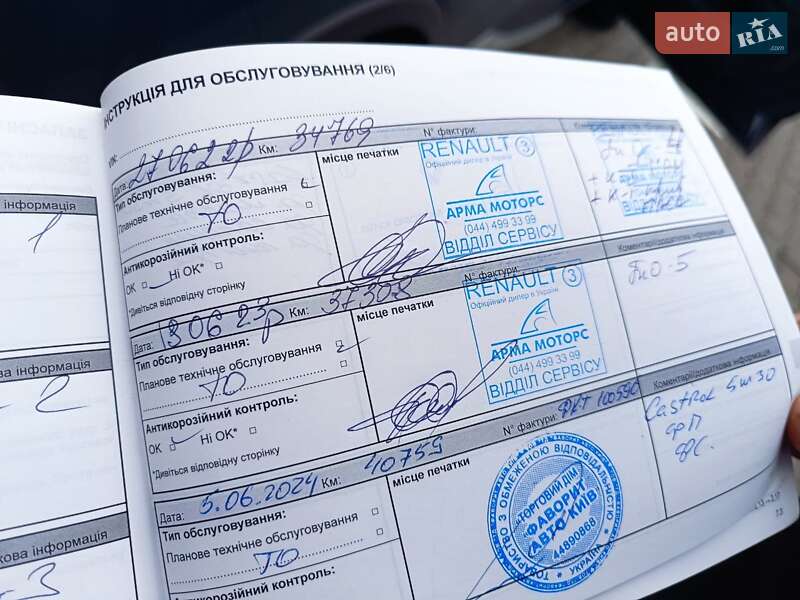 auto RIA
ІНСТРУКЦІЯ ДЛЯ ОБСЛУГОВУВАННЯ (2/6)
VIN:
Дата: 27.06.22р Км: 34769 N° фактури:
Тип обслуговування:
Планове технічне обслуговування
ТО
Антикорозійний контроль:
OK Ні OK*
*Дивіться відповідну сторінку
місце печатки
RENAULT 3
Офіційний дилер в Україні
АРМА МОТОРС
(044) 499 33 99
ВІДДІЛ СЕРВІСУ
Дата: 13.06.23р Км: 37308 N° фактури:
Коментарі/додаткова інформація
Тип обслуговування:
Планове технічне обслуговування
ТО
Антикорозійний контроль:
OK Ні OK*
*Дивіться відповідну сторінку
місце печатки
RENAULT 3
Офіційний дилер в Україні
АРМА МОТОРС
(044) 499 33 99
ВІДДІЛ СЕРВІСУ
ТиО-5
Дата: 5.06.2024 Км: 40759 N° фактури: ФКТ 100590
Коментарі/додаткова інформація
Тип обслуговування:
Планове технічне обслуговування
ТО
Антикорозійний контроль:
місце печатки
ТОВАРИСТВО З ОБМЕЖЕНОЮ ВІДПОВІДАЛЬНІСТЮ
"ТОРГОВИЙ ДІМ
"ФАВОРИТ
АВТО КИЇВ"
44890868
УКРАЇНА
Castrol 5w30
а інформація
1
ва інформація
2
кова інформація
3